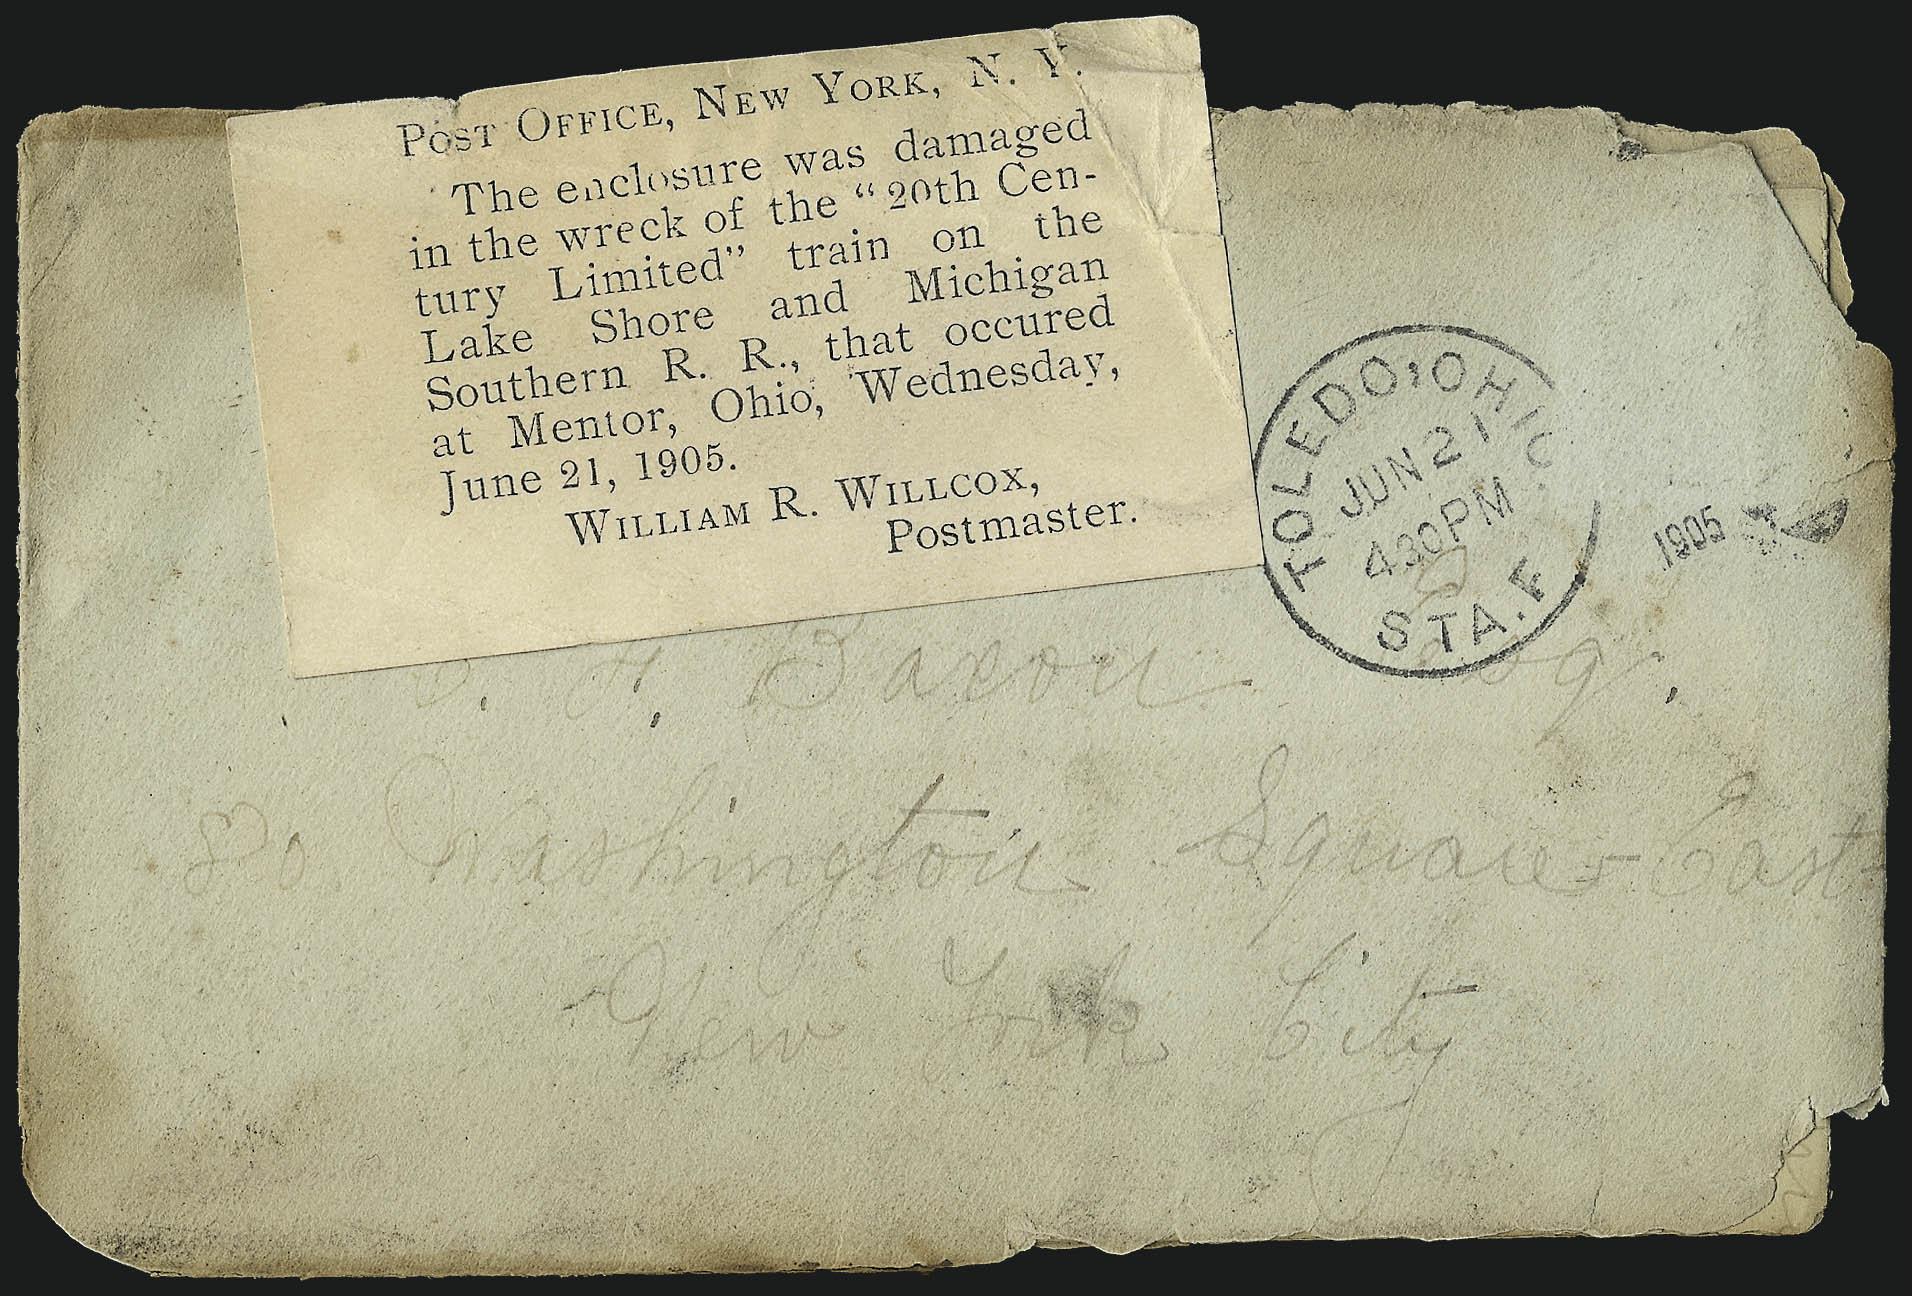 POST OFFICE, NEW YORK, N. Y.
The enclosure was damaged
in the wreck of the “20th Cen-
tury Limited” train on the
Lake Shore and Michigan
Southern R. R., that occured
at Mentor, Ohio, Wednesday,
June 21, 1905.
WILLIAM R. WILLCOX,
Postmaster.
TOLEDO, OHIO
JUN 21
430PM
STA. F.
1905
H. Bacon Esq.
80 Washington Square East
New York City